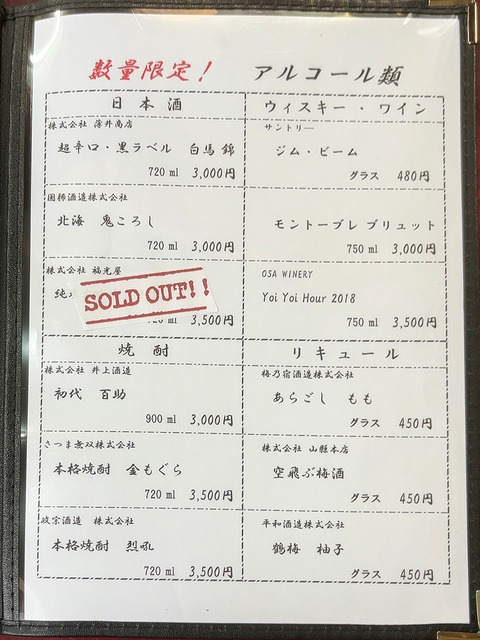 数量限定！ アルコール類
日本酒
株式会社 薄井商店
超辛口・黒ラベル 白馬 錦
720 ml 3,000円
国稀酒造株式会社
北海 鬼ころし
720 ml 3,000円
株式会社 福光屋
純
SOLD OUT!!
720 ml 3,500円
焼酎
株式会社 井上酒造
初代 百助
900 ml 3,000円
さつま無双株式会社
本格焼酎 金もぐら
720 ml 3,500円
政宗酒造 株式会社
本格焼酎 烈吼
720 ml 3,500円
ウィスキー・ワイン
サントリー
ジム・ビーム
グラス 480円
モントーブレ ブリュット
750 ml 3,000円
OSA WINERY
Yoi Yoi Hour 2018
750 ml 3,500円
リキュール
梅乃宿酒造株式会社
あらごし もも
グラス 450円
株式会社 山縣本店
空飛ぶ梅酒
グラス 450円
平和酒造株式会社
鶴梅 柚子
グラス 450円